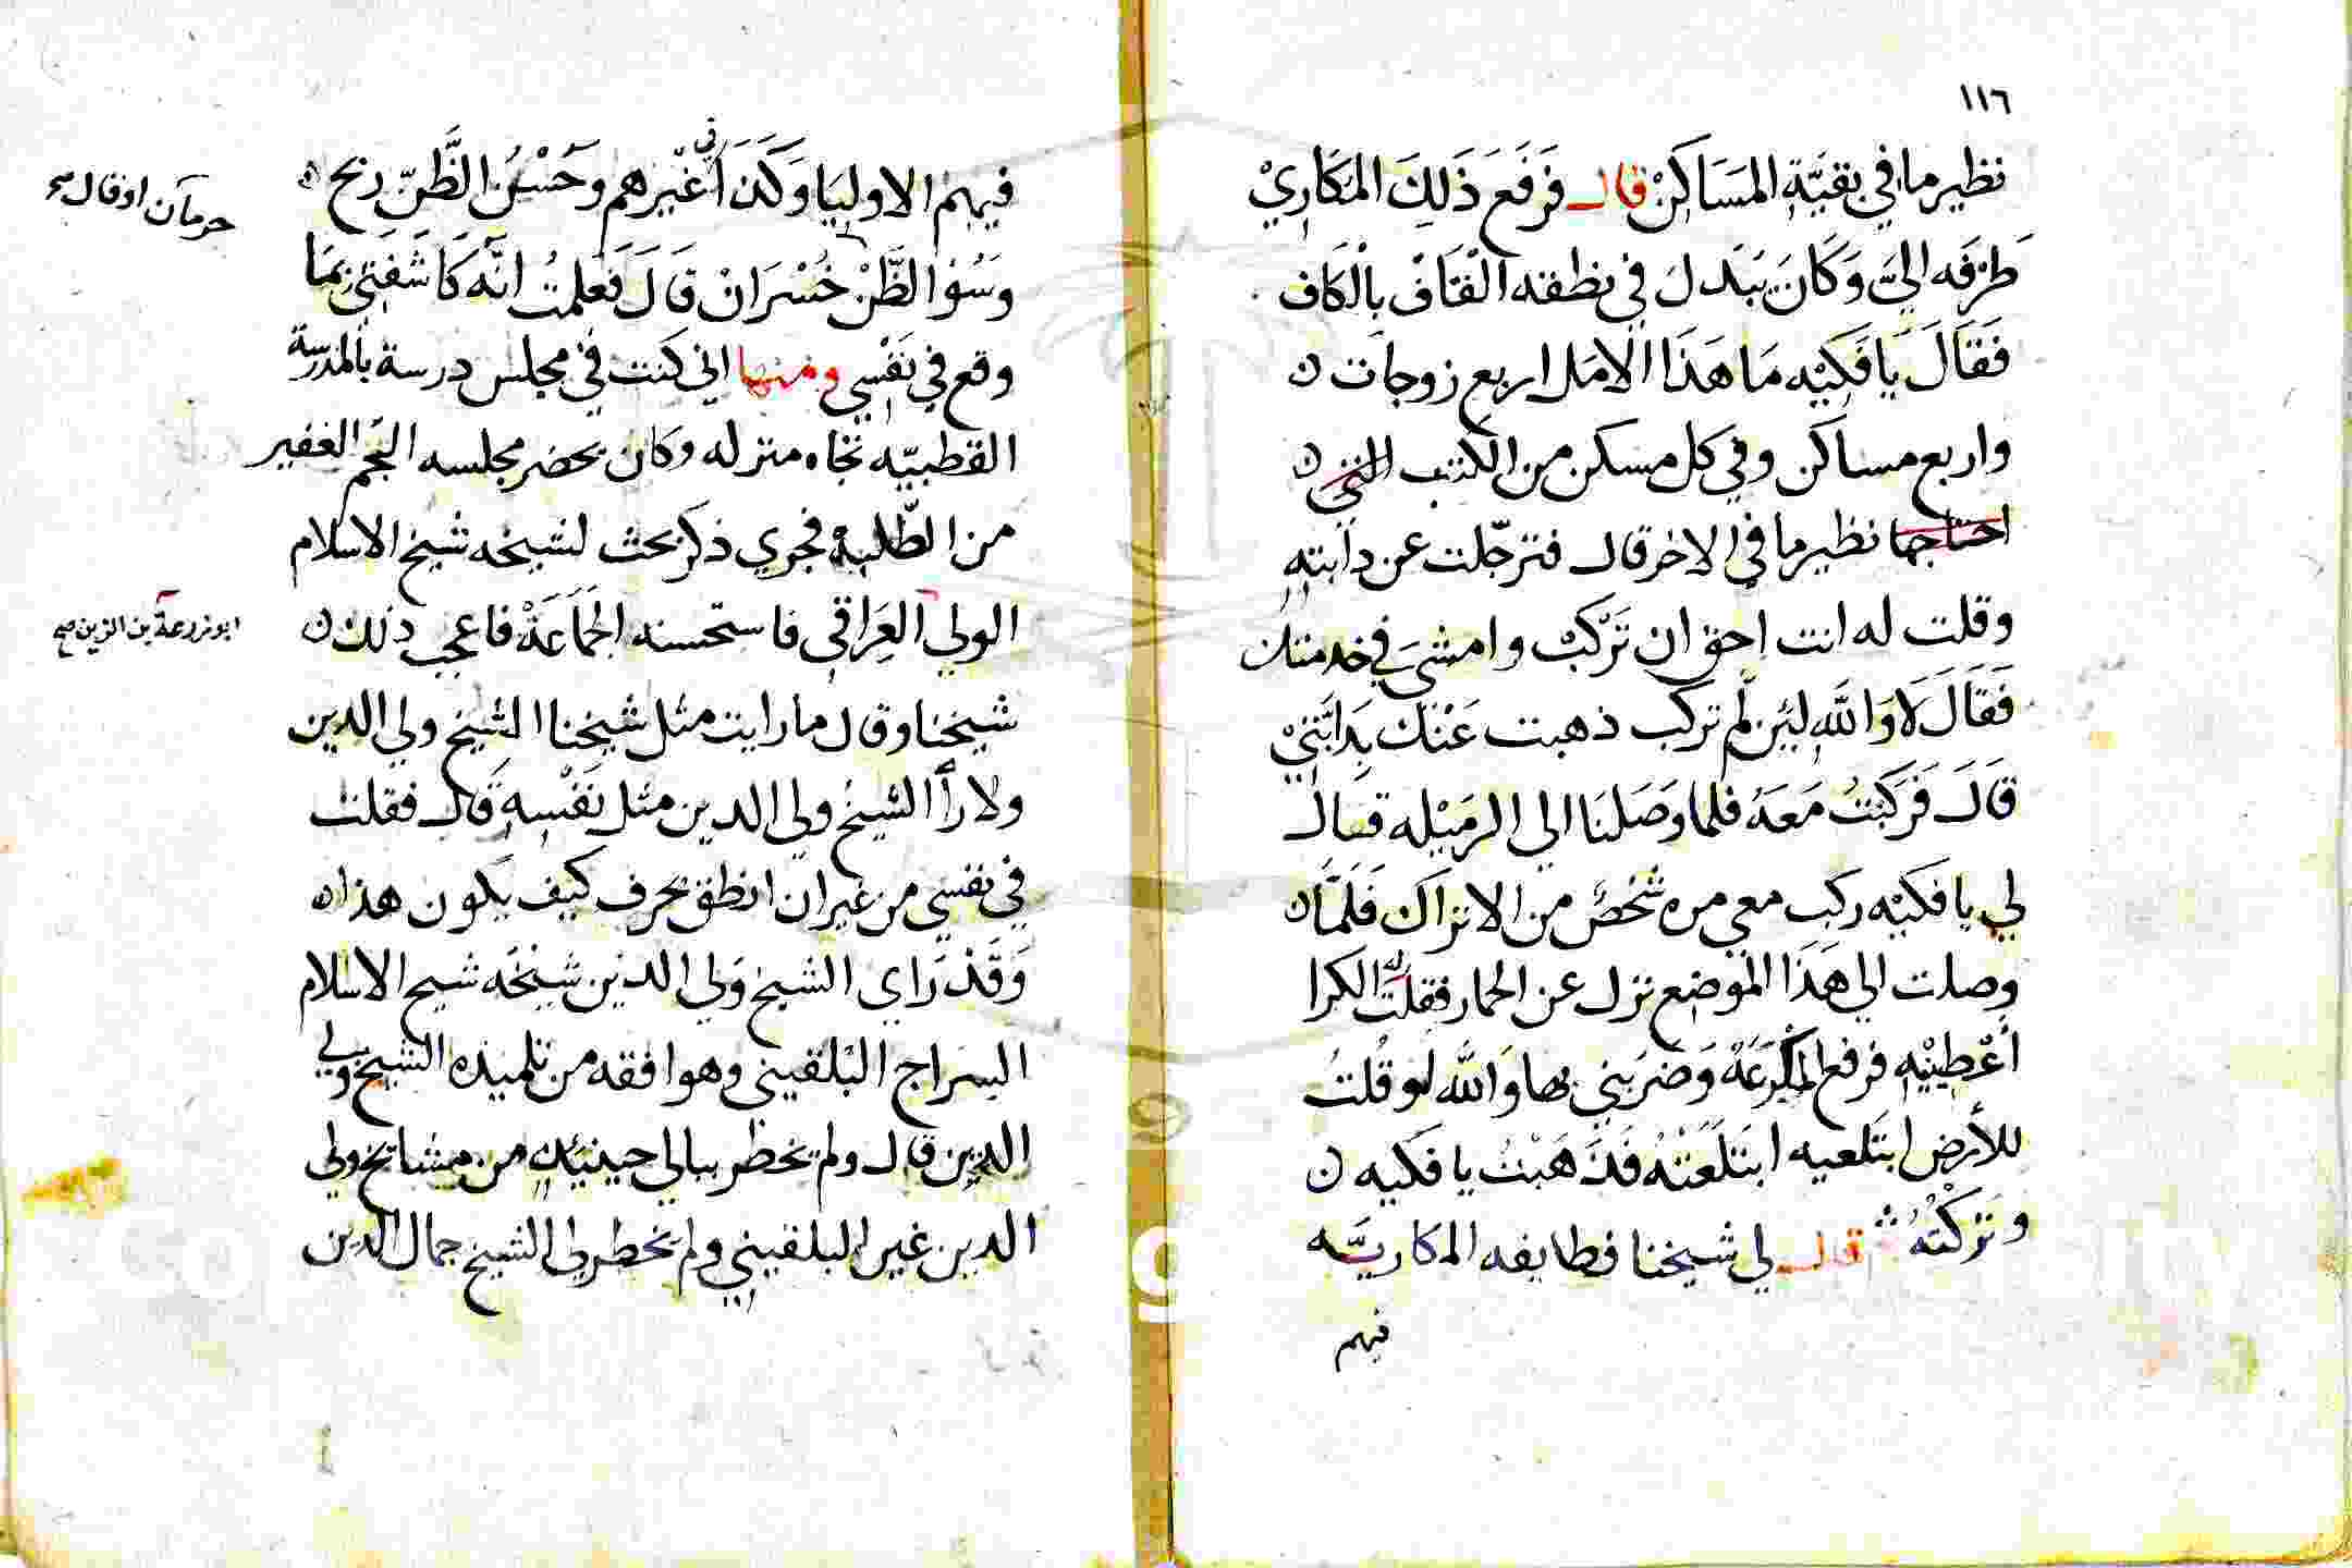 ١١٦
نظير ما في بقيَّةِ المسَاكِنْ قال فَرَفَعَ ذَلِكَ المكَارِيْ
طَرْفَه اليَّ وَكَانَ يُبَدل في نطقه القَافْ بالْكَاف
فَقَالَ يَا فَكِيْه مَا هَذَا الامَل اربع زوجات
واربع مساكن وفي كل مسكن من الكتب التي
احتاجها نظير ما في الاخر قال فترجّلت عن دابته
وقلت له انت احق ان تَرْكَبْ وامشىَ في خدمتك
فَقَالَ لَا وَاللَّهِ لئِن لَم تركب ذهبت عَنْكَ بِدَابَّتِيْ
قَالَ فَرَكبْتُ مَعَهُ فلما وَصَلنَا الي الرمَيْله قال
لي يا فكيْه ركب معي مره شخصٌ من الاتراك فَلَمَّا
وصلت الي هَذَا الموْضع نزل عن الحمار فقلت له الكرا
أعْطِيْنِيْهِ فرفع المكْرعَهْ وَضرَبني بها وَاللَّه لو قُلتُ
للأرض ابتَلعيه ابتَلَعَتْهُ فَذَهَبْتُ يا فكيه
وتَرَكْتُهُ قال لي شيخنا فطايفه المكاريَّه
فيهم
فيهم الاوليَا وَكَذَا في غيْرهم وَحُسْنُ الظَّنِّ ربح
وَسُوْ الظَّنْ خُسْرَانْ قَالَ فَعَلمتُ انَّه كَاشَفَني بمَا
وقع في نَفْسِي ومنها اني كنت في مجلس درسة بالمدرسة
القطبيّه تجاه منزله وكان يحضر مجلسه الجم الغفير
من الطّلبه فجري ذكر بحث لشيخه شيخ الاسلام
الولي العِرَاقي فاستحسنه الجَمَاعَهْ فاعجب ذلك
شيخنا وقال ما رايت مثل شيخنا الشيخ ولي الدين
ولا رأا الشيخ ولي الدين مثل نَفْسِهِ قال فقلت
في نفسي من غير ان انطق بحرف كيف يكون هذا
وَقَدْ رَاي الشيخ وَلي الدّين شَيْخَه شيخ الاسلام
السراج البُلقيني وهو افقه من تلميذه الشيخ ولي
الدين قال ولم يخطر ببالي حينئذٍ من مشايخ ولي
الدين غير البلقيني ولم يخطر لي الشيخ جمال الدين
حرمان او قال صح
ابو زرعة بن الزين صح